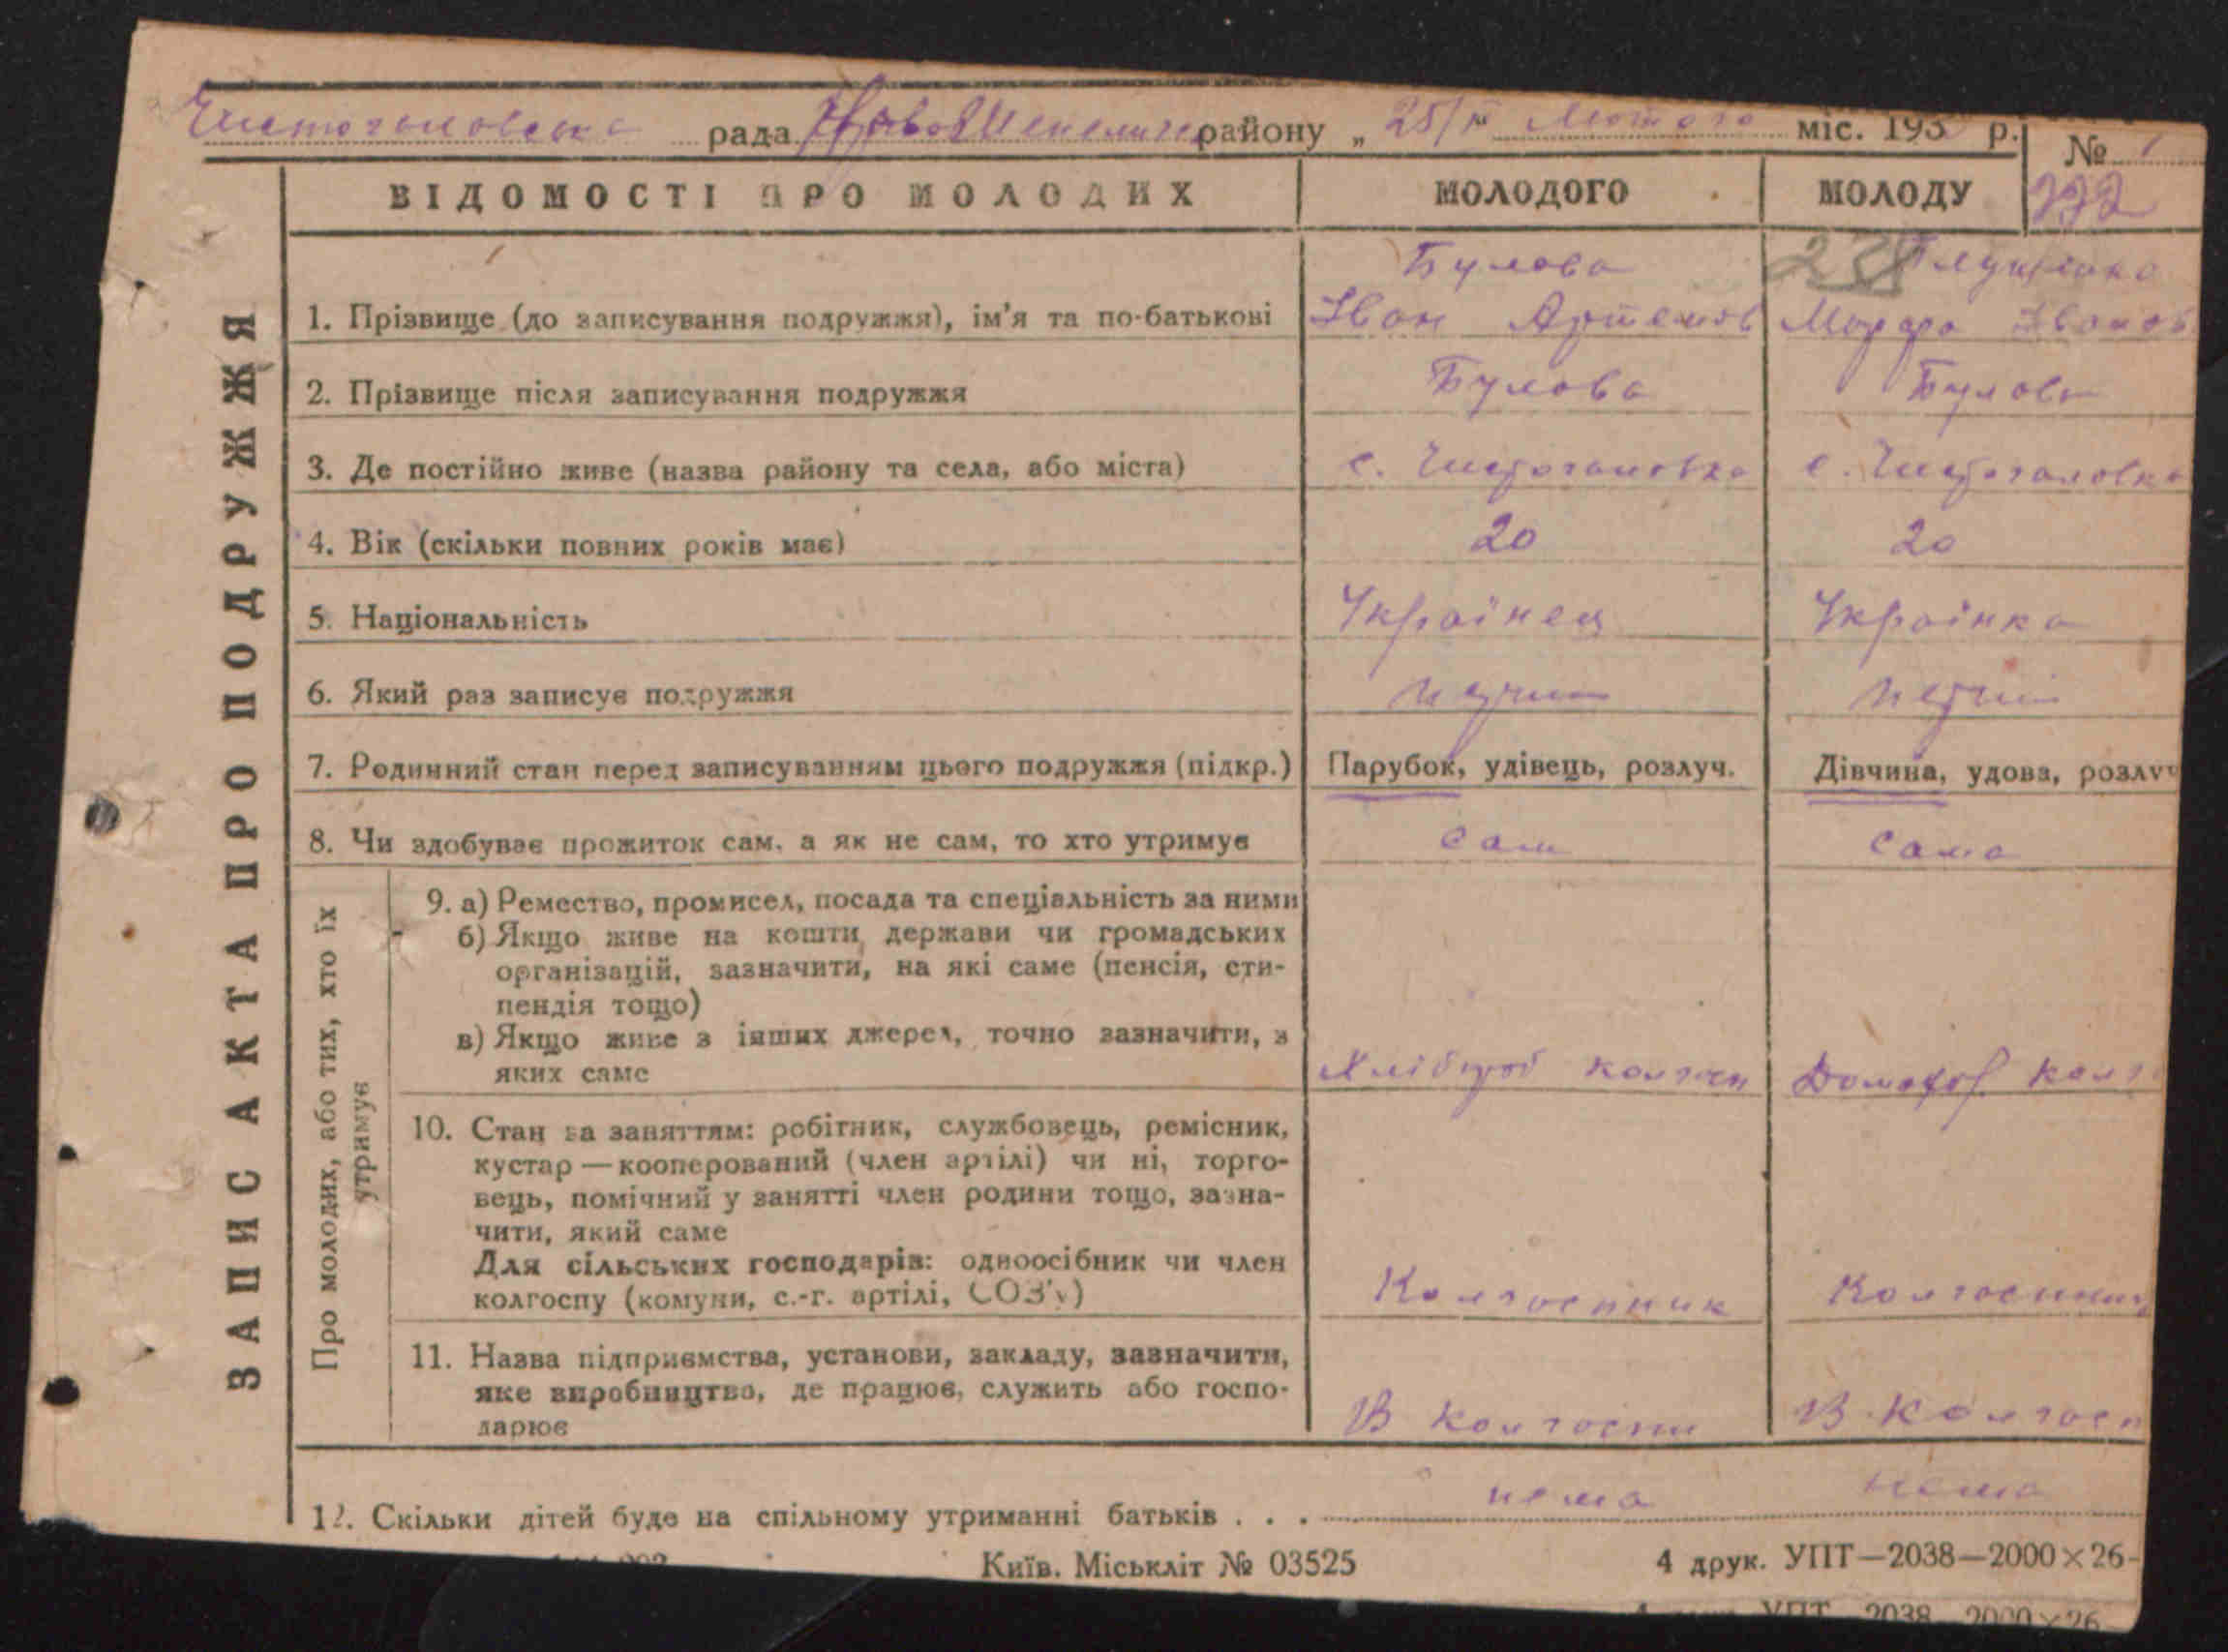 Чистогаловська рада Ново Шепелич району „ 25/II Лютого міс. 193 р.
№ 1
ВІДОМОСТІ ПРО МОЛОДИХ МОЛОДОГО МОЛОДУ
232
Булова
1. Прізвище (до записування подружжя), ім'я та по-батькові Іван Артемов Марфа Іванов
2. Прізвище після записування подружжя Булова Булова
3. Де постійно живе (назва району та села, або міста) с. Чистогаловка с. Чистогаловка
4. Вік (скільки повних років має) 20 20
5. Національність Українец Українка
6. Який раз записує подружжя перший перший
7. Родинний стан перед записуванням цього подружжя (підкр.) Парубок, удівець, розлуч. Дівчина, удова, розлуч
8. Чи здобуває прожиток сам, а як не сам, то хто утримує сам сама
ЗАПИС АКТА ПРО ПОДРУЖЖЯ
Про молодих, або тих, хто їх
утримує
9. а) Ремество, промисел, посада та спеціальність за ними
б) Якщо живе на кошти держави чи громадських
організацій, зазначити, на які саме (пенсія, сти-
пендія тощо)
в) Якщо живе з інших джерел, точно зазначити, з
яких саме Хлібороб колгосп Домогос. колг
10. Стан за заняттям: робітник, службовець, ремісник,
кустар — кооперований (член артілі) чи ні, торго-
вець, помічний у занятті член родини тощо, зазна-
чити, який саме
Для сільських господарів: одноосібник чи член
колгоспу (комуни, с.-г. артілі, СОЗ'у) Колгоспник Колгоспниц
11. Назва підприємства, установи, закладу, зазначити,
яке виробництво, де працює, служить або госпо-
дарює В колгоспи В колгосп
12. Скільки дітей буде на спільному утриманні батьків . . . нема нема
Київ. Міськліт № 03525 4 друк. УПТ—2038—2000×26-
УПТ 2038 2000×26